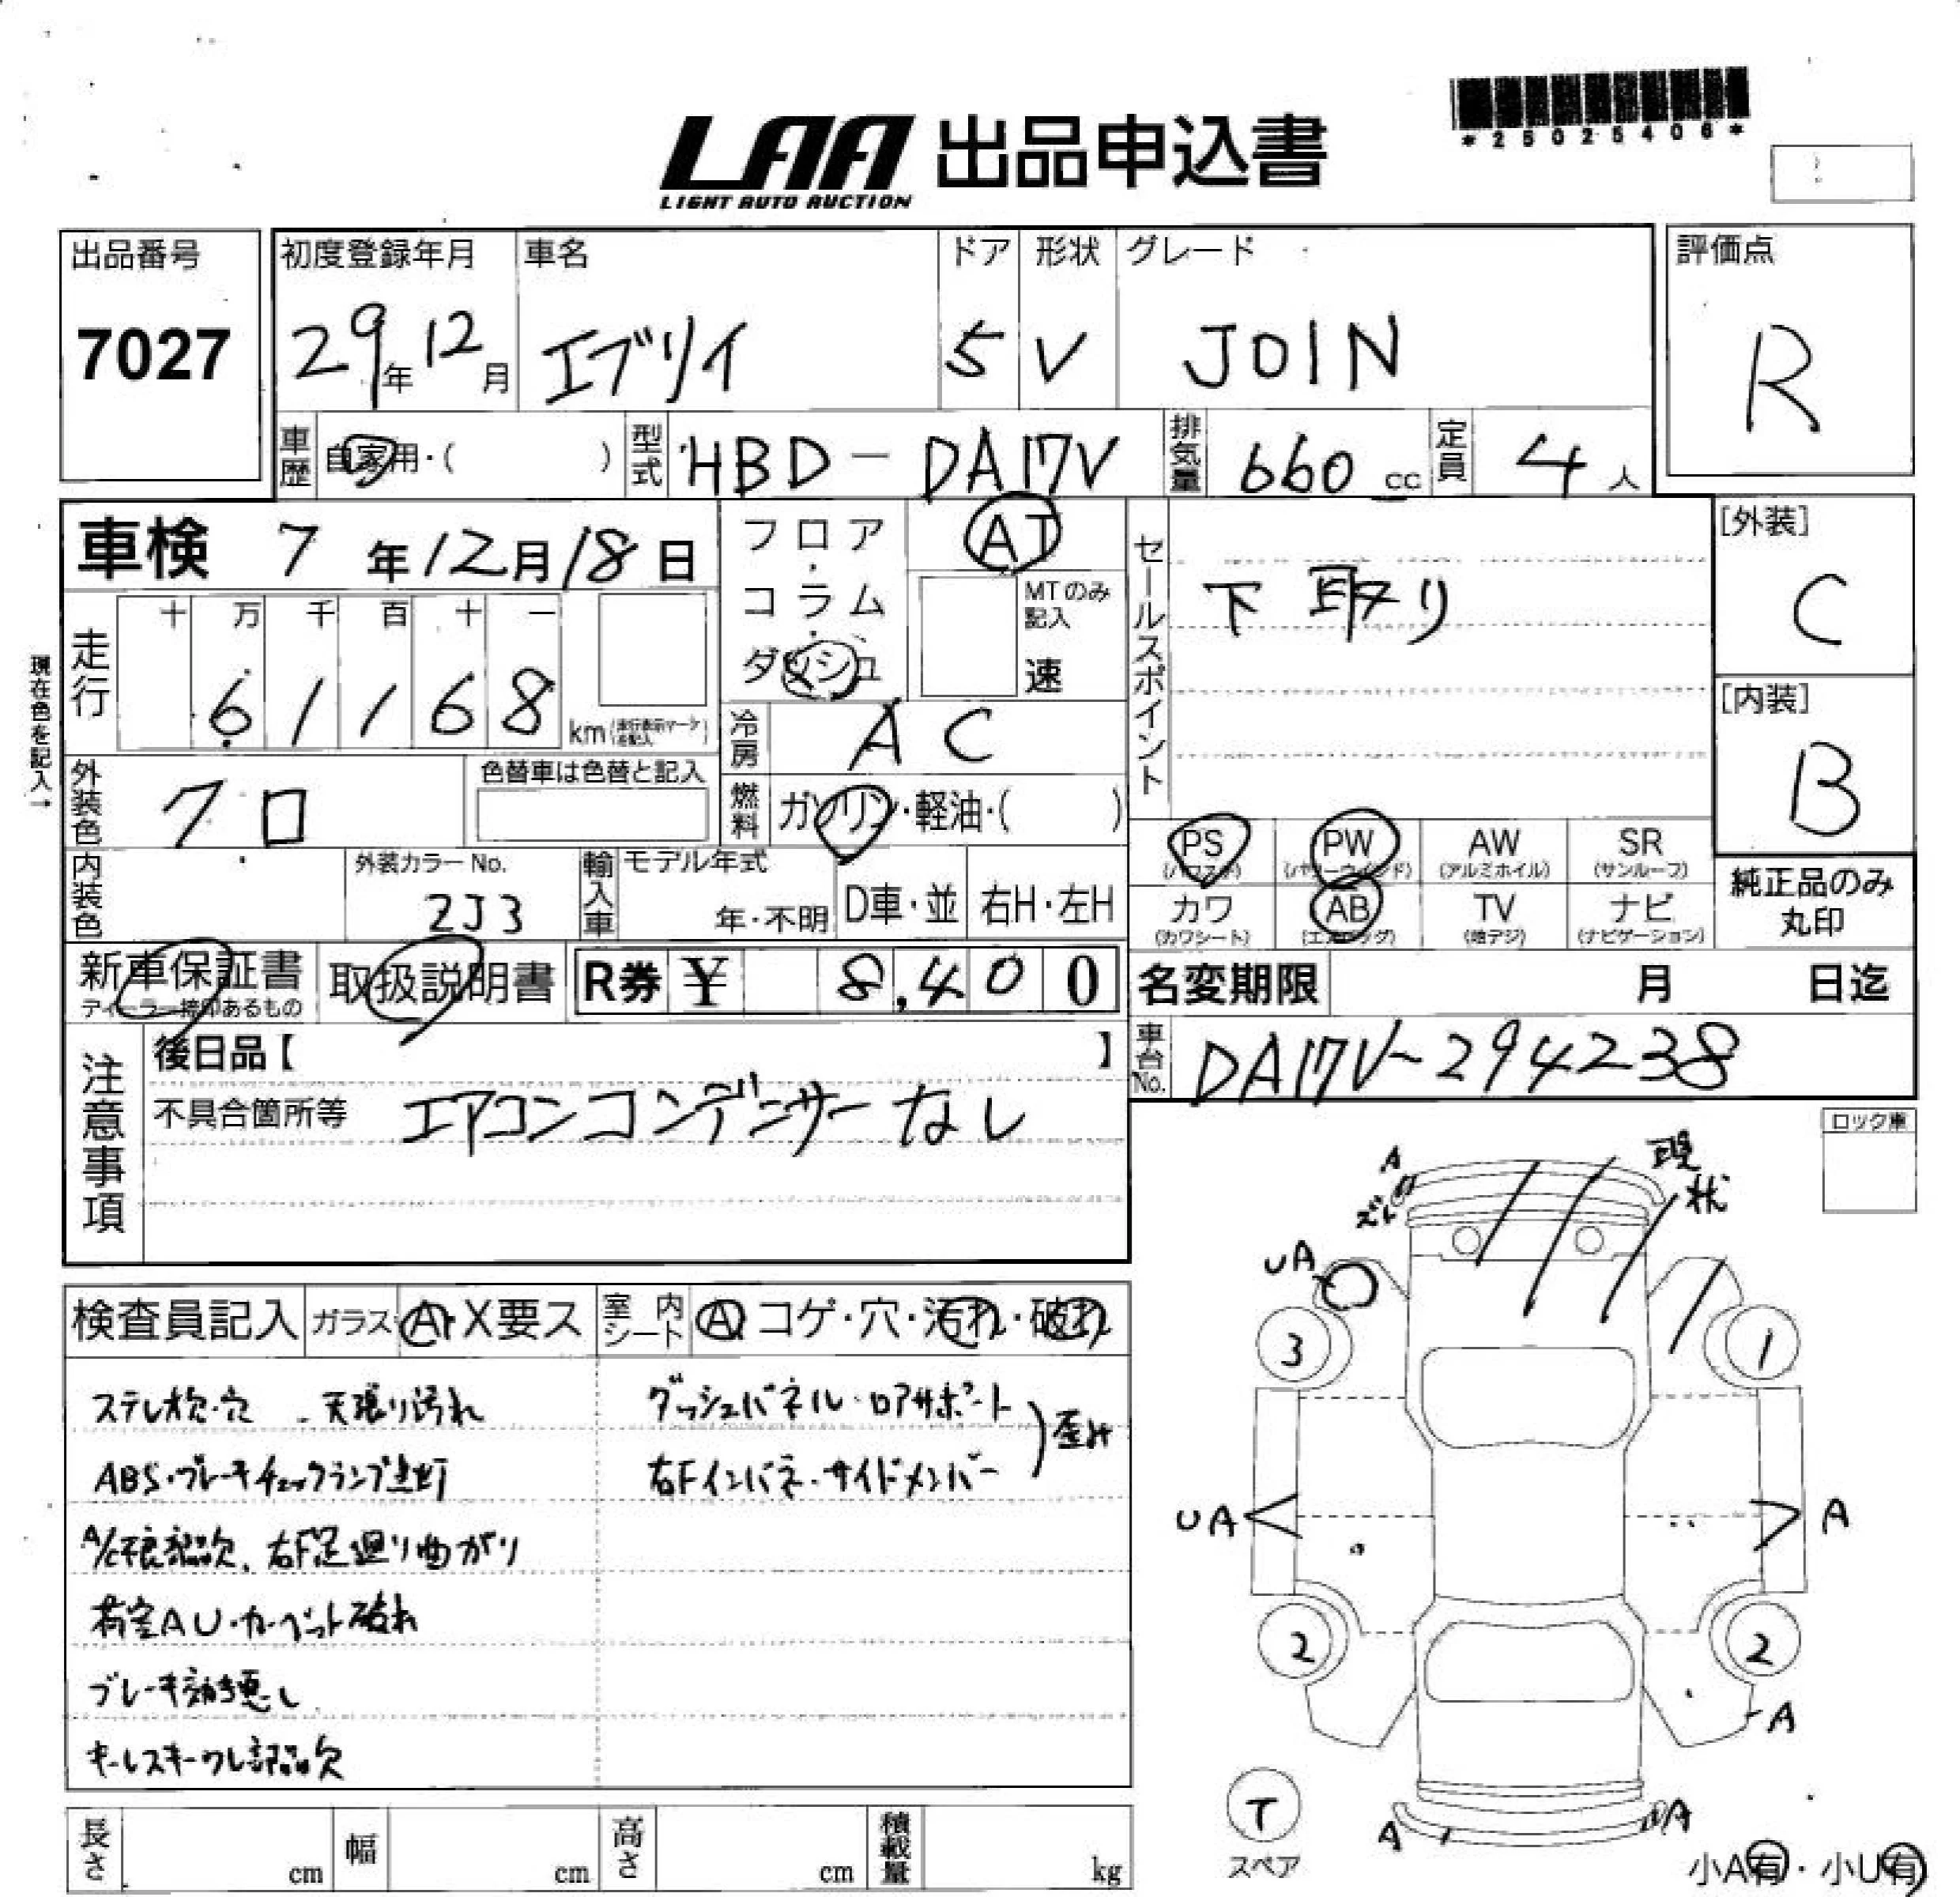 LAA 出品申込書
LIGHT AUTO AUCTION
*25025406*
出品番号
7027
初度登録年月
29年12月
車名
エブリイ
ドア
5
形状
V
グレード
JOIN
評価点
R
車歴 自家用・( )
型式 HBD-DA17V
排気量 660 cc
定員 4人
車検 7年12月18日
フロア・コラム・ダッシュ
AT
MTのみ記入
速
セールスポイント
下取り
[外装]
C
[内装]
B
現在色を記入→
走行 十万千百十一
61168 km
冷房 AC
外装色 クロ
色替車は色替と記入
燃料 ガソリン・軽油・( )
内装色
外装カラーNo.
2J3
輸入車 モデル年式
年・不明 D車・並 右H・左H
PS PW AW SR
(パワステ) (パワーウインド) (アルミホイル) (サンルーフ)
カワ AB TV ナビ
(カワシート) (エアバッグ) (地デジ) (ナビゲーション)
純正品のみ
丸印
新車保証書
ディーラー捺印あるもの
取扱説明書
R券 ¥ 8,400
名変期限 月 日迄
車台No. DA17V-294238
注意事項
後日品【 】
不具合箇所等 エアコンコンデンサーなし
ロック車
検査員記入 ガラス A・X要ス 室内シート A・コゲ・穴・汚れ・破れ
ステレオ欠・穴 . 天張り汚れ
ABS・ブレーキチェックランプ点灯
A/C不良部品欠、右F足廻り曲がり
荷室AU・カーペット破れ
ブレーキ効き悪し
キーレスキーワレ部品欠
ダッシュパネル・ロアサポート
右Fインパネ・サイドメンバー
歪み
A
ズレ
現状
UA
3
1
UA
A
2
2
A
T
スペア
A
A
小A有・小U有
長さ cm 幅 cm 高さ cm 積載量 kg